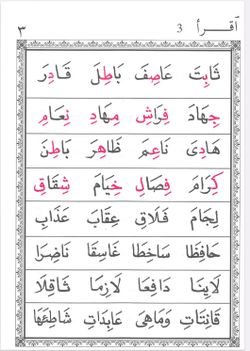 أَقْــرأ 3 ٣
ثَابِتَ عَاصِفَ بَاطِلَ قَادِرَ
جِهَادَ فِرَاشَ مِهَادِ نِعَامِ
هَادِىَ نَاعِمَ ظَاهِرَ بَاطِنَ
كِرَامَ فِصَالِ خِيَامَ شِقَاقِ
لِجَامَ فَلَاقِ عِقَابَ عَذَابِ
حَافِظَا سَاخِطَا غَاسِقَا نَاضِرَا
لَابِنَا دَافِعَا لَازِمَا ثَاقِلَا
قَانِتَاتِ وَمَاهِىَ عَابِدَاتِ شَاطِئِهَا